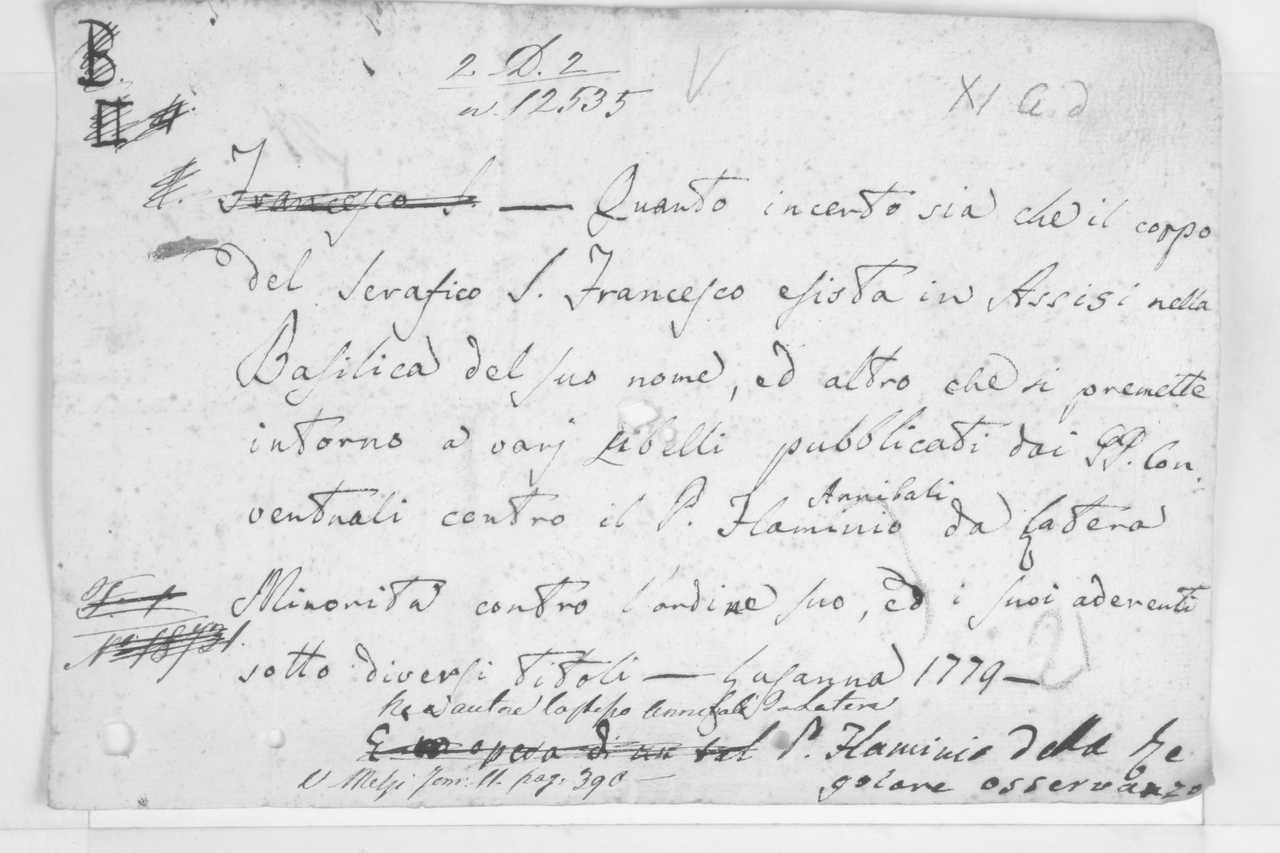 B.
2. D. 2
n. 12535
XI
II
Francesco S. — Quanto incerto sia che il corpo
del Serafico S. Francesco esista in Assisi nella
Basilica del suo nome, ed altro che si premette
intorno a varj Libelli pubblicati dai PP. Con
Annibali
ventuali contro il P. Flaminio da Latera
Minorita contro l'ordine suo, ed i suoi aderenti
sotto diversi titoli — Lusanna 1779 —
autore lo stesso Annibali da Latera
E opera di un tal P. Flaminio della Re
golare osservanza
V Melzi Tom. II. pag. 390 —
21